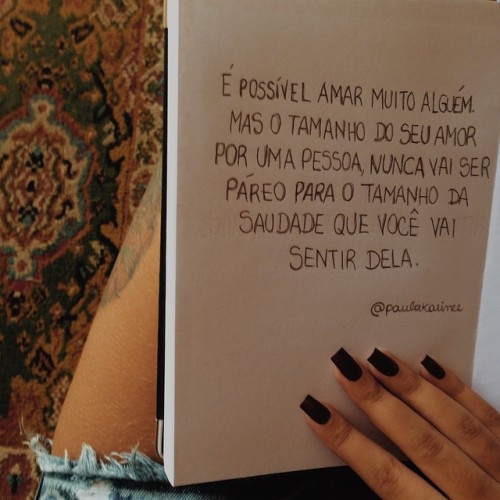 É POSSÍVEL AMAR MUITO ALGUÉM.
MAS O TAMANHO DO SEU AMOR
POR UMA PESSOA, NUNCA VAI SER
PÁREO PARA O TAMANHO DA
SAUDADE QUE VOCÊ VAI
SENTIR DELA.
@paulakarinee